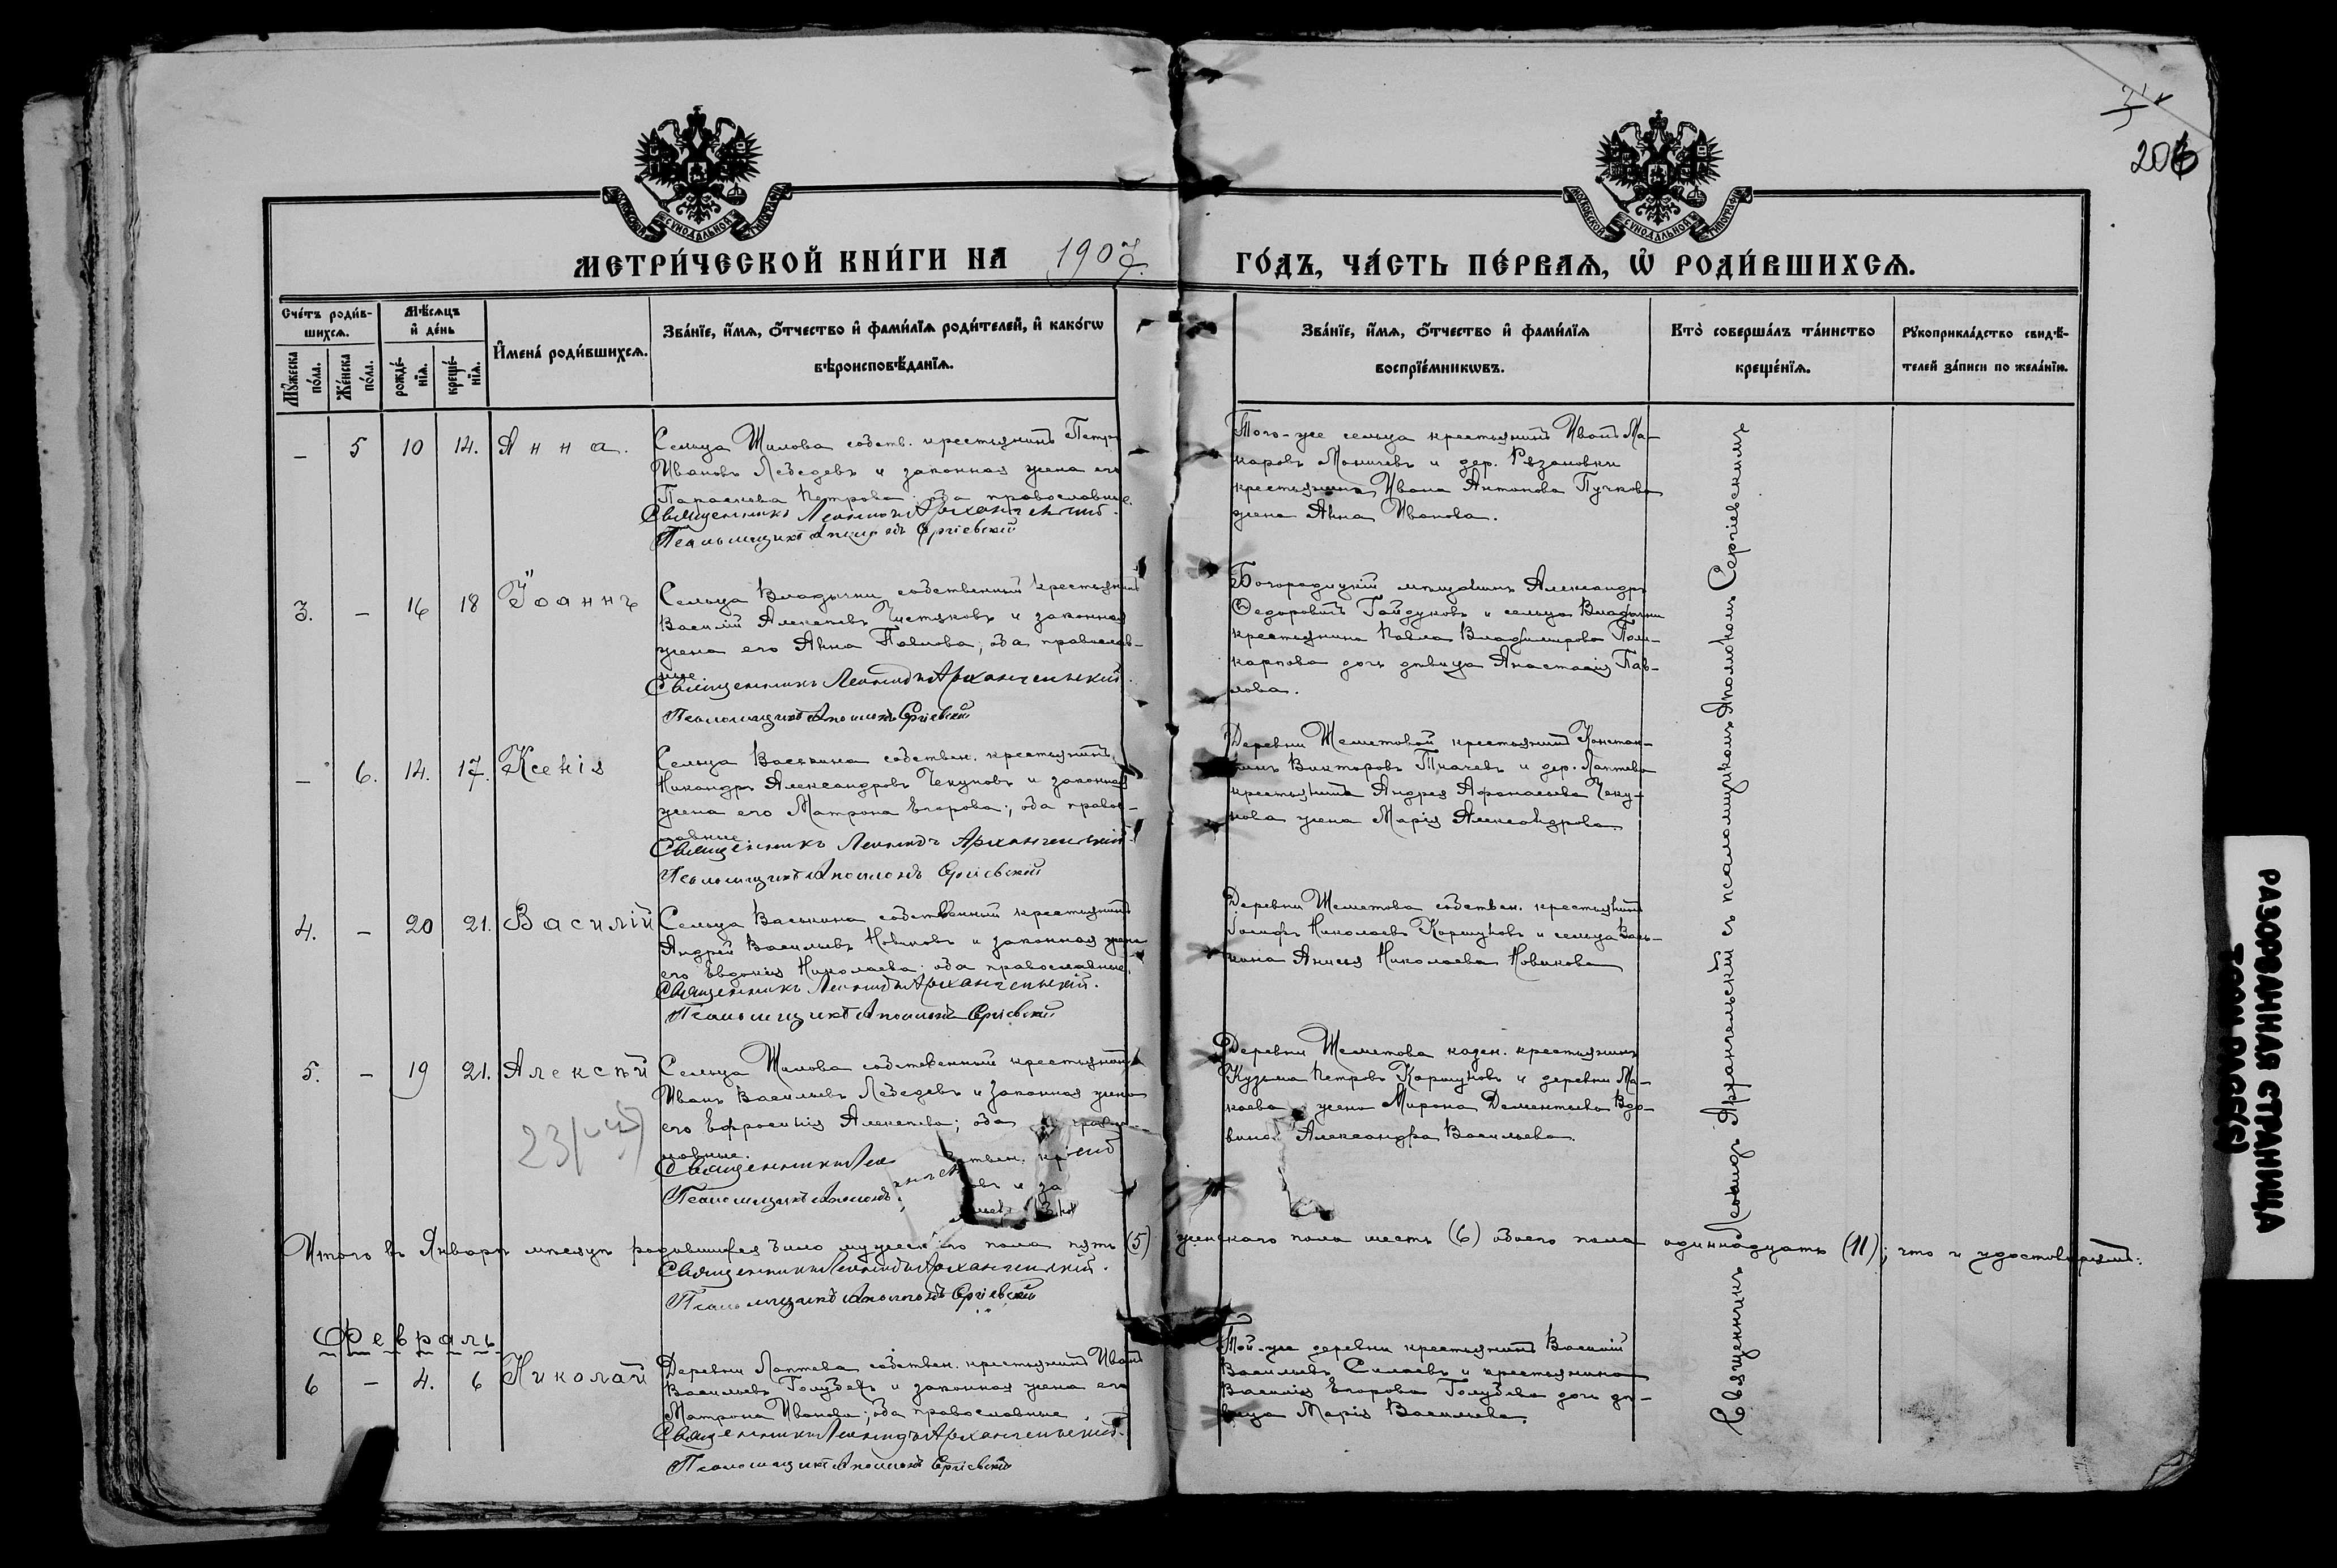 206
МОСКОВСКОЙ СѴНОДАЛЬНОЙ ТИПОГРАФІИ
МОСКОВСКОЙ СѴНОДАЛЬНОЙ ТИПОГРАФІИ
МЕТРИ́ЧЕСКОЙ КНИ́ГИ НА 1907 ГО́ДЪ, ЧА́СТЬ ПЕ́РВАѦ, Ѡ РОДИ́ВШИХСѦ.
Сче́тъ роди́в-
шихсѧ.
Мꙋ́жеска по́ла.
Же́нска по́ла.
Мѣ́сѧцъ
и҆ де́нь
рожде́-
нїѧ.
креще́-
нїѧ.
И҆мена̀ роди́вшихсѧ.
Зва́нїе, и҆́мѧ, ѻ҆́тчество и҆ фами́лїѧ роди́телей, и҆ како́гѡ
вѣроисповѣ́данїѧ.
Зва́нїе, и҆́мѧ, ѻ҆́тчество и҆ фами́лїѧ
воспрїе́мникѡвъ.
Кто̀ соверша́лъ та́инство
креще́нїѧ.
Рꙋкоприкла́дство свидѣ́-
телей за́писи по жела́нїю.
– 5 10 14. Анна.
Сельца Шилова собств. крестьянинъ Петръ
Ивановъ Лебедевъ и законная жена его
Параскева Петрова; оба православные.
Священникъ Леонидъ Архангельскій.
Псаломщикъ Аполлонъ Сергіевскій
Того-же сельца крестьянинъ Иванъ Ма-
каровъ Моничевъ и дер. Рязановки
крестьянина Ивана Антонова Пучкова
жена Анна Иванова.
3. – 16 18 Іоаннъ
Сельца Владычни собственный крестьянинъ
Василій Алексѣевъ Чистяковъ и законная
жена его Анна Павлова; оба православ-
ные.
Священникъ Леонидъ Архангельскій.
Псаломщикъ Аполлонъ Сергіевскій
Богородицкій мѣщанинъ Александръ
Ѳедоровичъ Гайдуковъ и сельца Владычни
крестьянина Павла Владимірова Поли-
карпова дочь дѣвица Анастасія Пав-
лова.
– 6. 14. 17. Ксенія
Сельца Васькина собствен. крестьянинъ
Никандръ Александровъ Чекуновъ и законная
жена его Матрона Егорова; оба правос-
лавные.
Священникъ Леонидъ Архангельскій.
Псаломщикъ Аполлонъ Сергіевскій
Деревни Шеметовой крестьянинъ Констан-
тинъ Викторовъ Ткачевъ и дер. Лаптева
крестьянина Андрея Афанасьева Чеку-
нова жена Марія Александрова.
4. – 20 21. Василій
Сельца Васькина собственный крестьянинъ
Андрей Васильевъ Новиковъ и законная жена
его Евдокія Николаева; оба православные.
Священникъ Леонидъ Архангельскій.
Псаломщикъ Аполлонъ Сергіевскій
Деревни Шеметова собствен. крестьянинъ
Іосифъ Николаевъ Коршуновъ и сельца Вась-
кина Анисья Николаева Новикова
5. – 19 21. Алексѣй
Сельца Шилова собственный крестьянинъ
Иванъ Васильевъ Лебедевъ и законная жена
его Ефросинія Алексѣева; оба правос-
лавные.
Священникъ
Псаломщикъ Аполлонъ
Деревни Шеметова казен. крестьянинъ
Кузьма Петровъ Коршуновъ и деревни Ма-
каева жена Мирона Дементьева Вдо-
вина Александра Васильева.
Итого въ Январѣ мѣсяцѣ родившихся было мужескаго пола пять (5) женскаго пола шесть (6) обоего пола одиннадцать (11); что и удостовѣряемъ:
Священникъ Леонидъ Архангельскій.
Псаломщикъ Аполлонъ Сергіевскій
Февраль
6 – 4. 6 Николай
Деревни Лаптева собствен. крестьянинъ Иванъ
Васильевъ Голубевъ и законная жена его
Матрона Иванова; оба православные
Священникъ Леонидъ Архангельскій.
Псаломщикъ Аполлонъ Сергіевскій
Той-же деревни крестьянинъ Василій
Васильевъ Силаевъ и крестьянина
Василія Егорова Голубева дочь дѣ-
вица Марія Васильева.
Священникъ Леонидъ Архангельскій съ псаломщикомъ Аполлономъ Сергіевскимъ
РАЗОРВАННАЯ СТРАНИЦА
TORN PAGE(S)